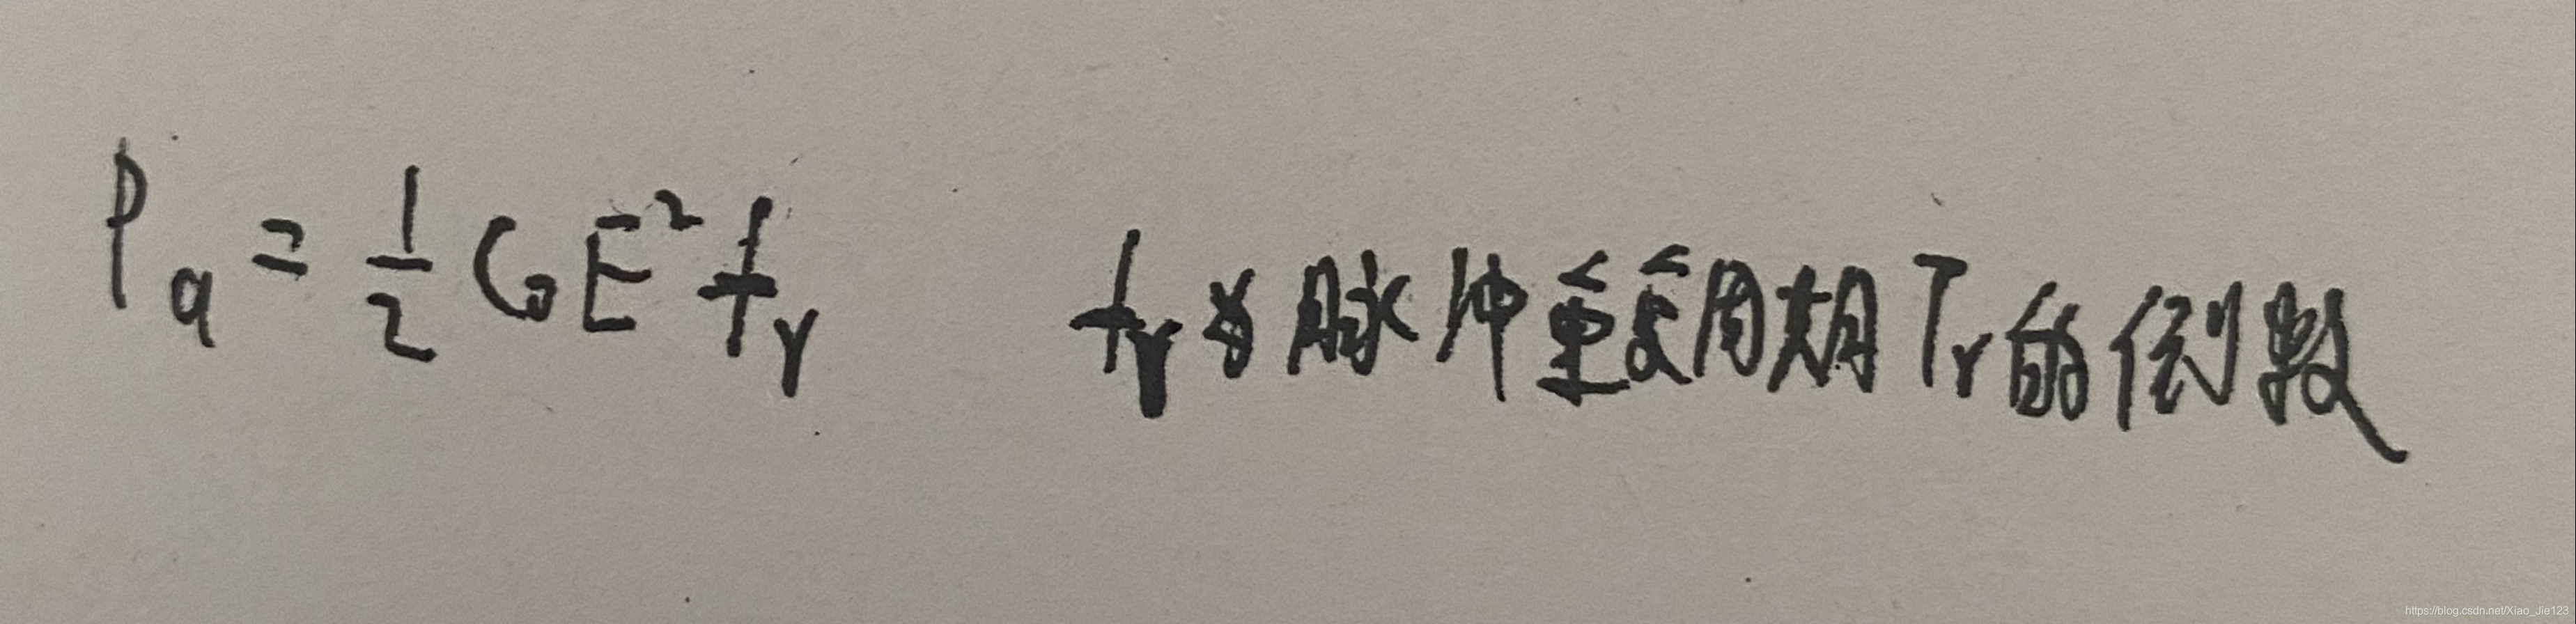 Pa = 1/2 C₀E²fr fr为脉冲重复周期Tr的倒数
https://blog.csdn.net/Xiao_Jie123